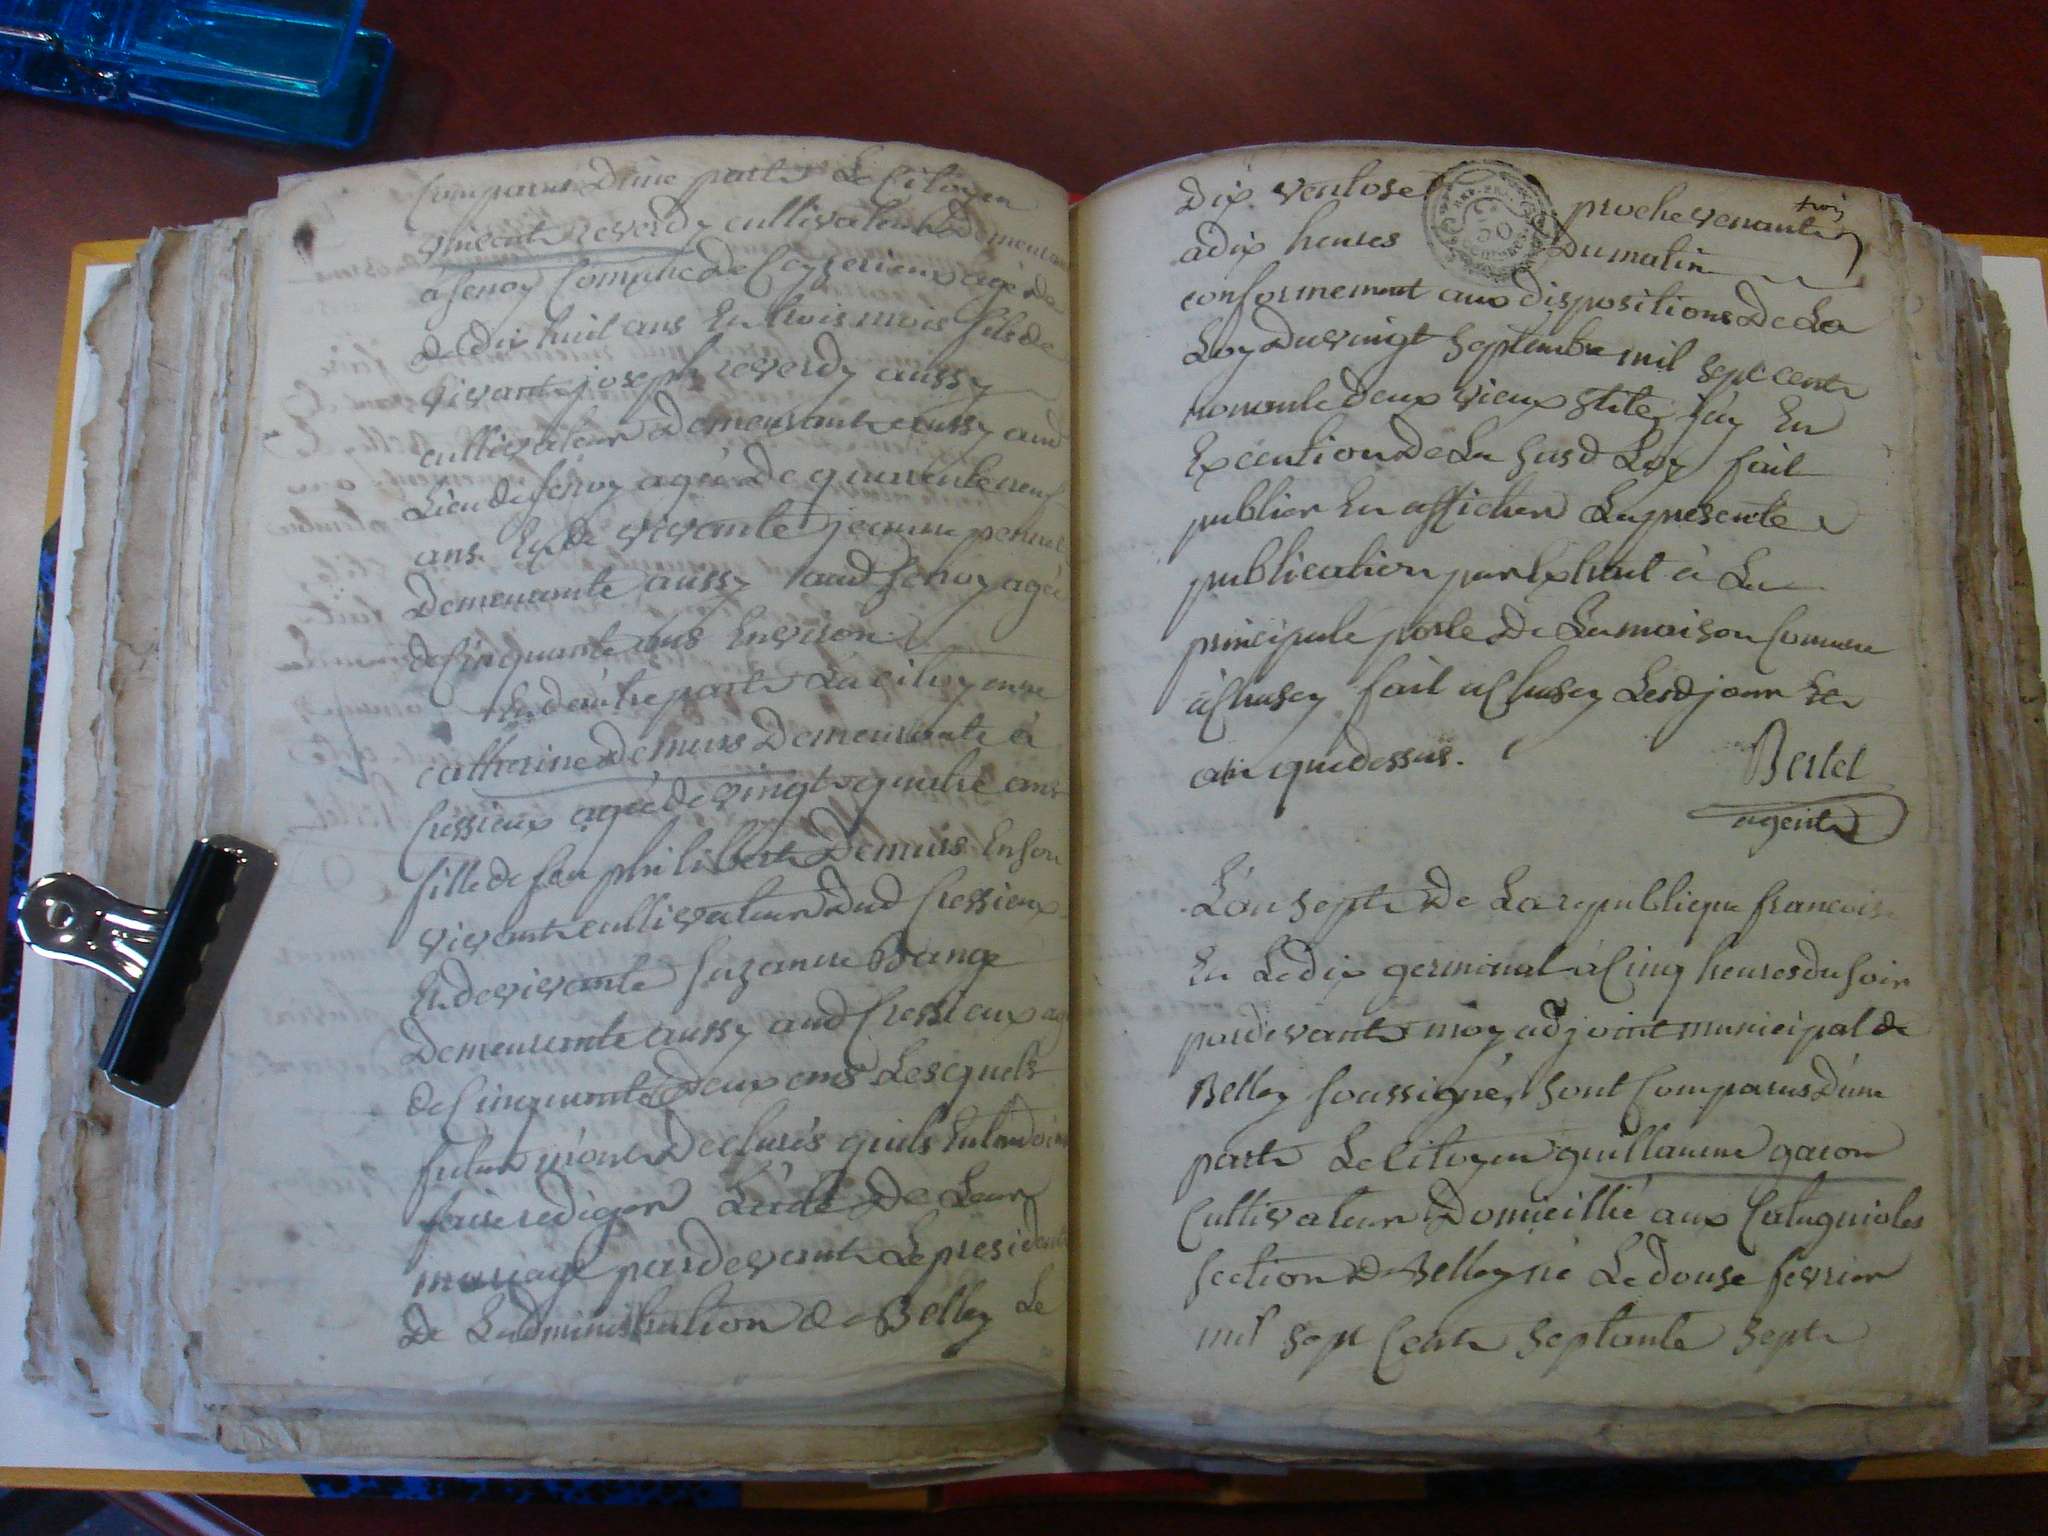 Comparus Dune part Le Citoyen
vincent reverdy cultivateur Demeurant
à Senoy Commune de Ceyzerieux agé De
De dix huit ans En trois mois fils de
vivant joseph reverdy aussy
cultivateur Demeurant aussy aud
Lieu de Senoy agée De quarente neuf
ans En de vivante jeanne
Demeurante aussy aud Senoy agée
de Cinquante ans Environ
En d'autre part La citoyenne
catherine Demurs Demeurante à
Cressieux agée de vingt quatre ans
fille de feu philibert Demurs En son
vivant cultivateur Dud Cressieux
En de vivante Suzanne Bange
Demeurante aussy aud Cressieux
de Cinquante Deux ans Lesquels
futur m'ont Declarés quils Entendoint
faire rediger L'acte De Leur
mariage pardevant Le president
De Ladministration De Belley Le
Dix ventose proche venant trois
à dix heures Du matin
conformement aux dispositions De La
Loy Du vingt Septembre mil Sept cent
nonante deux vieux stile, j'ay En
Execution De La Susd Loy fait
publier En afficher La presente
publication par Extrait à La
principale porte De La maison Comune
à Chasey fait a Chasey Lesd jour En
an que dessus. Bertet
agent
L'an Sept De La republique francoise
En Le dix germinal à Cinq heures du Soir
pardevant moy adjoint municipal de
Belley Soussigné, Sont Comparus D'une
part Le Citoyen guillaume garon
Cultivateur Domicillié aux Catagnioles
Section De Belley né Le douse fevrier
mil Sept Cent Septante Sept